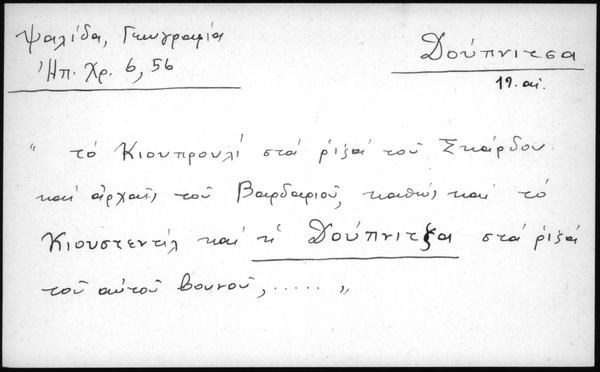 Ψαλίδα, Γεωγραφία
Ἠπ. Χρ. 6, 56
Δούπνιτσα
19. αἰ.
" τό Κιουπρουλί στά ριζά τοῦ Σκάρδου
καί ἀρχαῖς τοῦ Βαρδαριοῦ, καθώς καί τό
Κιουστεντίλ καί ἡ Δούπνιτζα στά ριζά
τοῦ αὐτοῦ βουνοῦ, ..... "